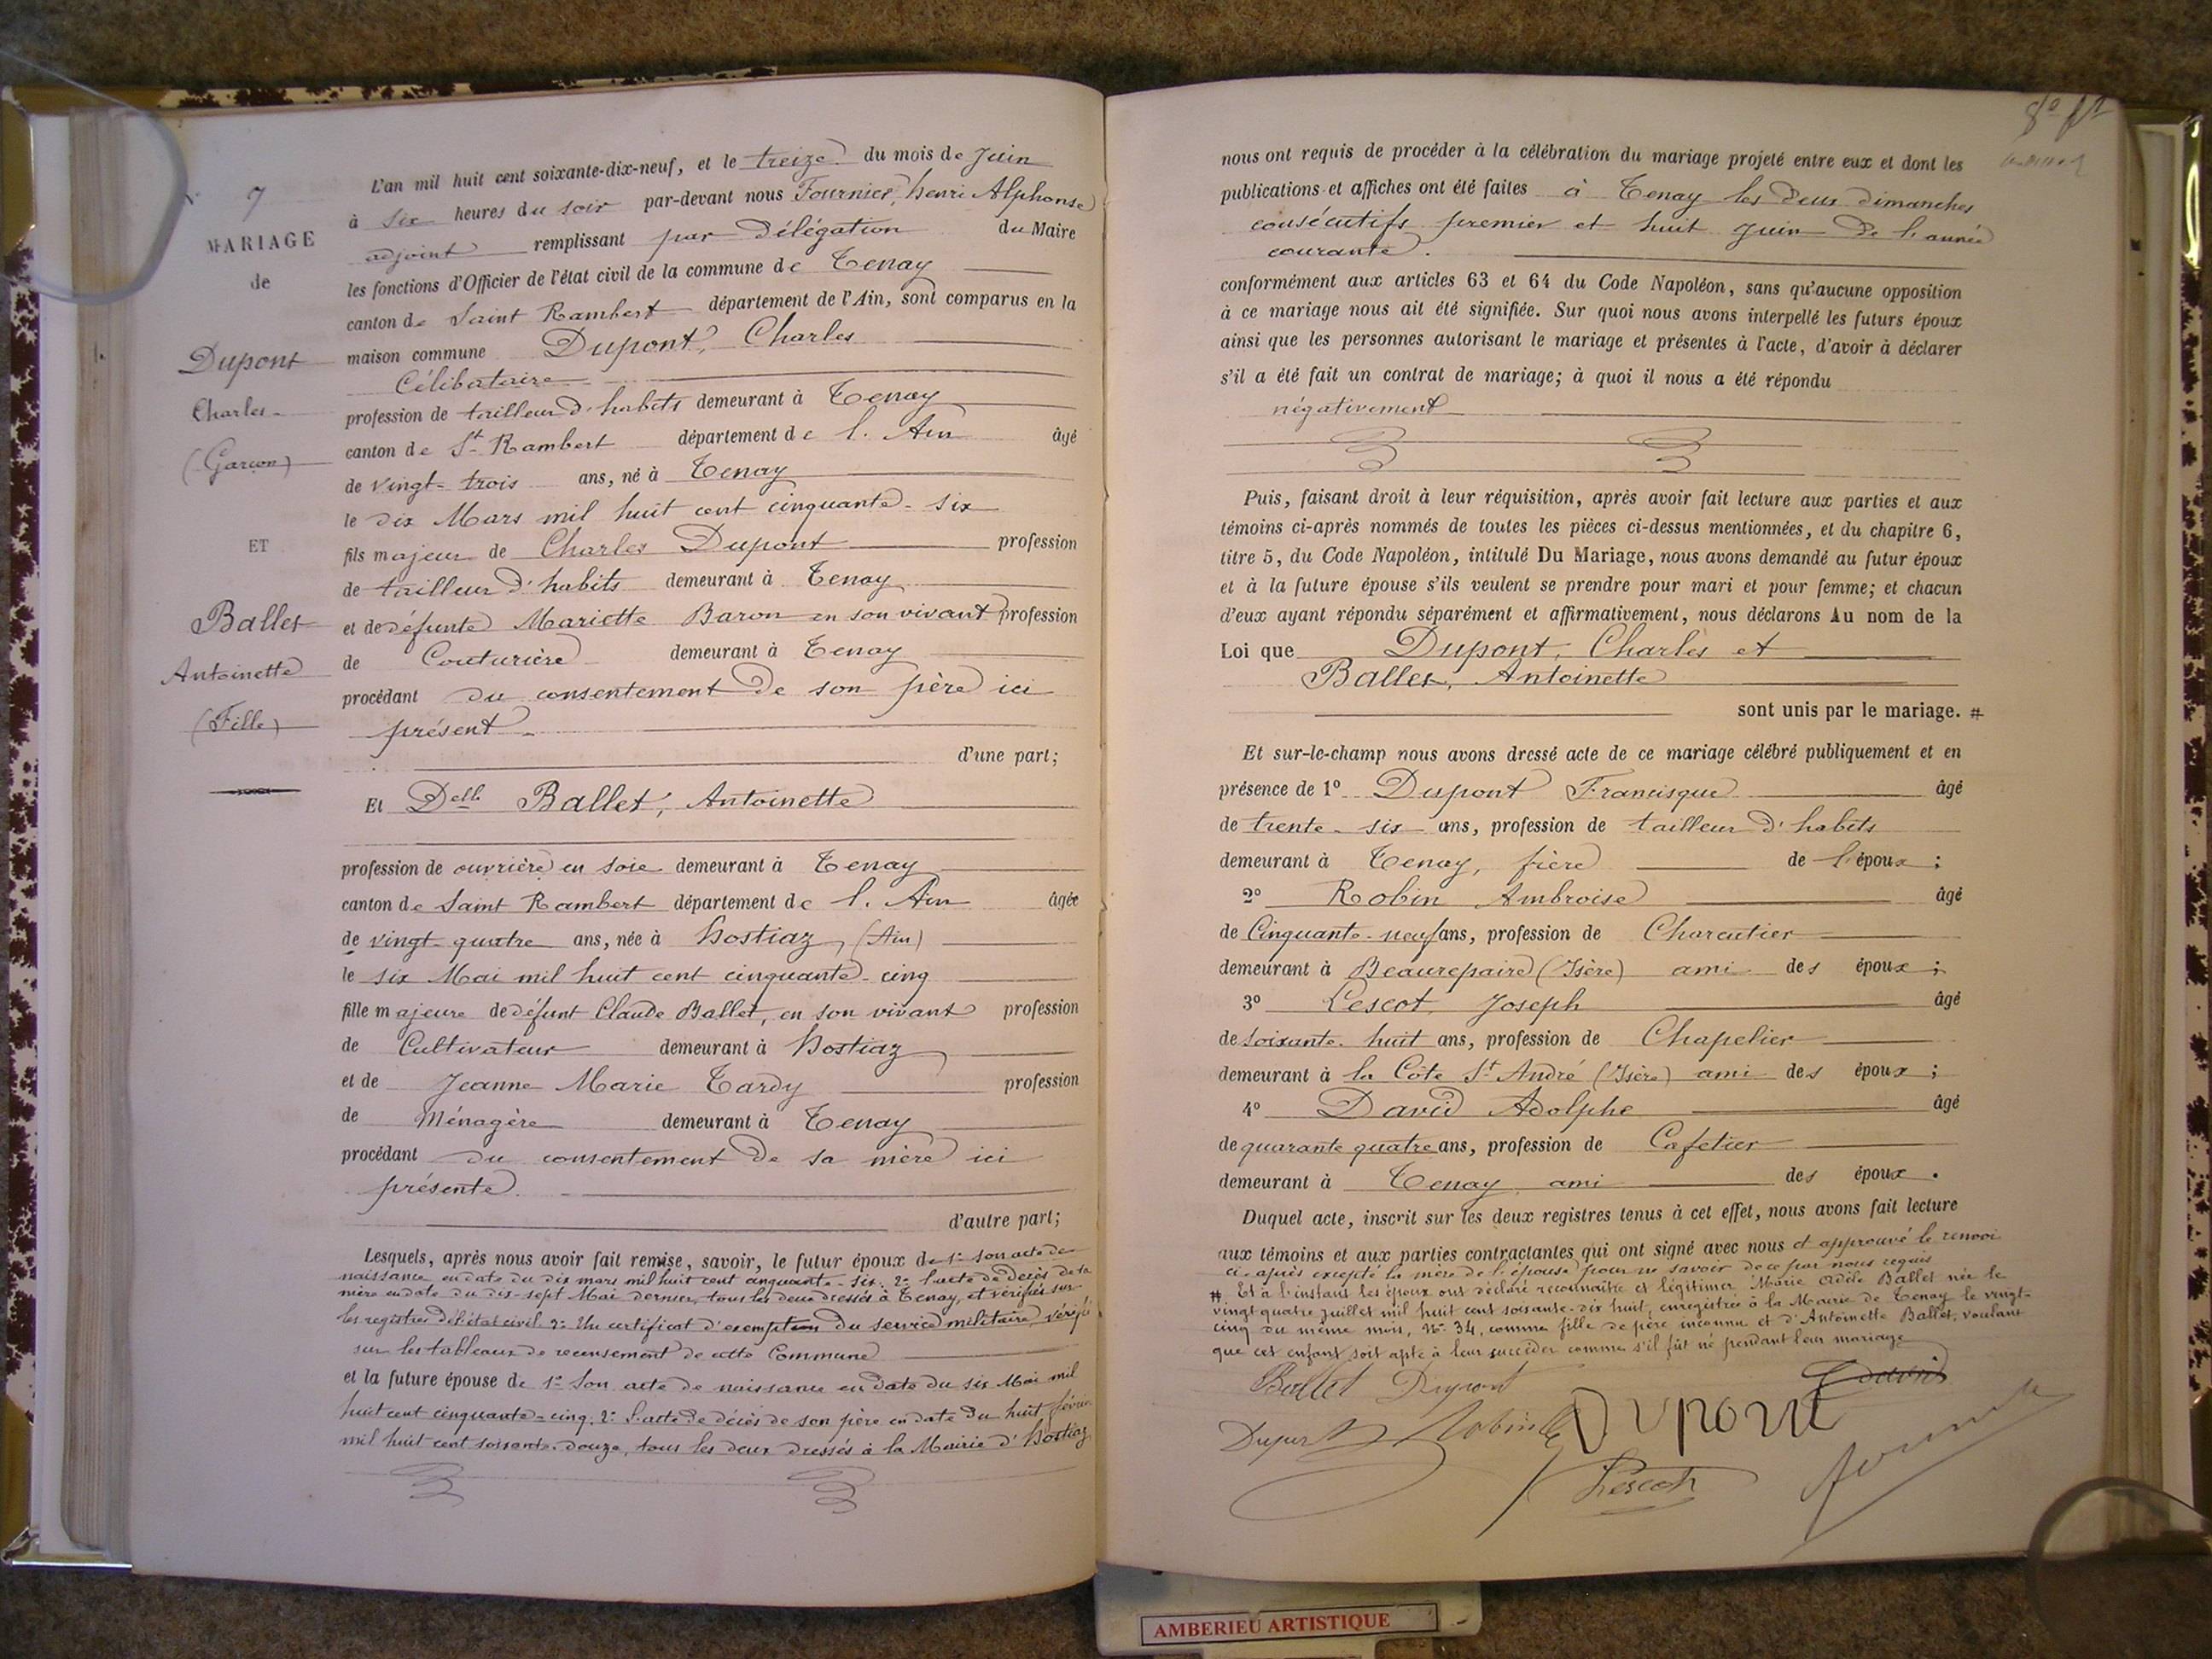 7
MARIAGE
de
Dupont
Charles
(Garçon)
ET
Ballet
Antoinette
(Fille)
L'an mil huit cent soixante-dix-neuf, et le treize du mois de Juin
à six heures du soir par-devant nous Fournier, henri Alphonse
adjoint remplissant par délégation du Maire
les fonctions d'Officier de l'état civil de la commune de Tenay
canton de Saint Rambert département de l'Ain, sont comparus en la
maison commune Dupont, Charles
Célibataire
profession de tailleur d'habits demeurant à Tenay
canton de St Rambert département de l'Ain âgé
de vingt-trois ans, né à Tenay
le dix Mars mil huit cent cinquante-six
fils majeur de Charles Dupont profession
de tailleur d'habits demeurant à Tenay
et de défunte Mariette Baron en son vivant profession
de Couturière demeurant à Tenay
procédant du consentement de son père ici
présent
d'une part;
Et Delle Ballet, Antoinette
profession de ouvrière en soie demeurant à Tenay
canton de Saint Rambert département de l'Ain âgée
de vingt-quatre ans, née à hostiaz, (Ain)
le six Mai mil huit cent cinquante-cinq
fille majeure de défunt Claude Ballet, en son vivant profession
de Cultivateur demeurant à hostiaz,
et de Jeanne Marie Tardy profession
de Ménagère demeurant à Tenay
procédant du consentement de sa mère ici
présente.
d'autre part;
Lesquels, après nous avoir fait remise, savoir, le futur époux de 1º son acte de
naissance en date du dix mars mil huit cent cinquante-six. 2º l'acte de décès de sa
mère en date du dix-sept Mai dernier, tous les deux dressés à Tenay, et vérifiés sur
les registres de l'état civil. 3º Un certificat d'exemption du service militaire, vérifié
sur les tableaux de recensement de cette Commune
et la future épouse de 1º Son acte de naissance en date du six Mai mil
huit cent cinquante-cinq. 2º l'acte de décès de son père en date du huit février
mil huit cent soixante-douze, tous les deux dressés à la Mairie d'hostiaz
nous ont requis de procéder à la célébration du mariage projeté entre eux et dont les
publications et affiches ont été faites à Tenay les deux dimanches
consécutifs premier et huit juin de l'année
courante.
conformément aux articles 63 et 64 du Code Napoléon, sans qu'aucune opposition
à ce mariage nous ait été signifiée. Sur quoi nous avons interpellé les futurs époux
ainsi que les personnes autorisant le mariage et présentes à l'acte, d'avoir à déclarer
s'il a été fait un contrat de mariage; à quoi il nous a été répondu
négativement
Puis, faisant droit à leur réquisition, après avoir fait lecture aux parties et aux
témoins ci-après nommés de toutes les pièces ci-dessus mentionnées, et du chapitre 6,
titre 5, du Code Napoléon, intitulé Du Mariage, nous avons demandé au futur époux
et à la future épouse s'ils veulent se prendre pour mari et pour femme; et chacun
d'eux ayant répondu séparément et affirmativement, nous déclarons Au nom de la
Loi que Dupont, Charles et
Ballet, Antoinette
sont unis par le mariage. #
Et sur-le-champ nous avons dressé acte de ce mariage célébré publiquement et en
présence de 1º Dupont Francisque âgé
de trente-six ans, profession de tailleur d'habits
demeurant à Tenay, frère de l'époux ;
2º Robin Ambroise âgé
de Cinquante-neuf ans, profession de Charcutier
demeurant à Beaurepaire (Isère) ami des époux ;
3º Lescot Joseph âgé
de soixante-huit ans, profession de Chapelier
demeurant à la Côte St André (Isère) ami des époux ;
4º David Adolphe âgé
de quarante quatre ans, profession de Cafetier
demeurant à Tenay ami des époux .
Duquel acte, inscrit sur les deux registres tenus à cet effet, nous avons fait lecture
aux témoins et aux parties contractantes qui ont signé avec nous et approuvé le renvoi
ci-après excepté la mère de l'épouse pour ne savoir de ce par nous requis
# Et à l'instant les époux ont déclaré reconnaître et légitimer Marie Adèle Ballet née le
vingt quatre juillet mil huit cent soixante-dix huit, enregistrée à la Mairie de Tenay le vingt-
cinq du même mois, Nº 34, comme fille de père inconnu et d'Antoinette Ballet, voulant
que cet enfant soit apte à leur succéder comme s'il fût né pendant leur mariage
Ballet Dupont David
Dupont Robin Dupont
Lescot
AMBERIEU ARTISTIQUE